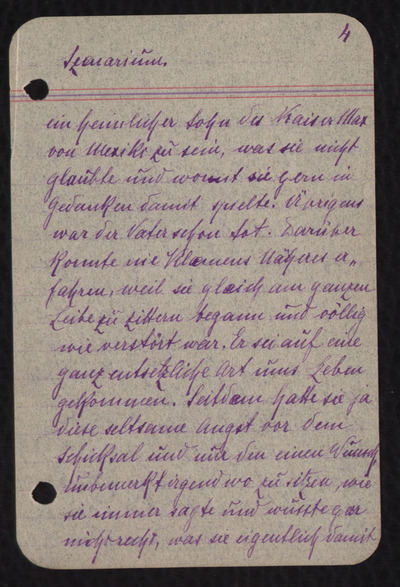 4
Szenarium.
ein heimlicher Sohn des Kaiser Max
von Mexiko zu sein, was sie nicht
glaubte und womit sie gern in
Gedanken damit spielte. Übrigens
war der Vater schon tot. Darüber
konnte nie Klemens Näheres er„
fahren, weil sie gleich am ganzen
Leibe zu zittern begann und völlig
wie verstört war. Er sei auf eine
ganz entsetzliche Art ums Leben
gekommen. Seitdem hatte sie ja
diese seltsame Angst vor dem
Schicksal und nur den einen Wunsch
unbemerkt irgendwo zu sitzen, wie
sie immer sagte und wusste gar
nicht recht, was sie eigentlich damit